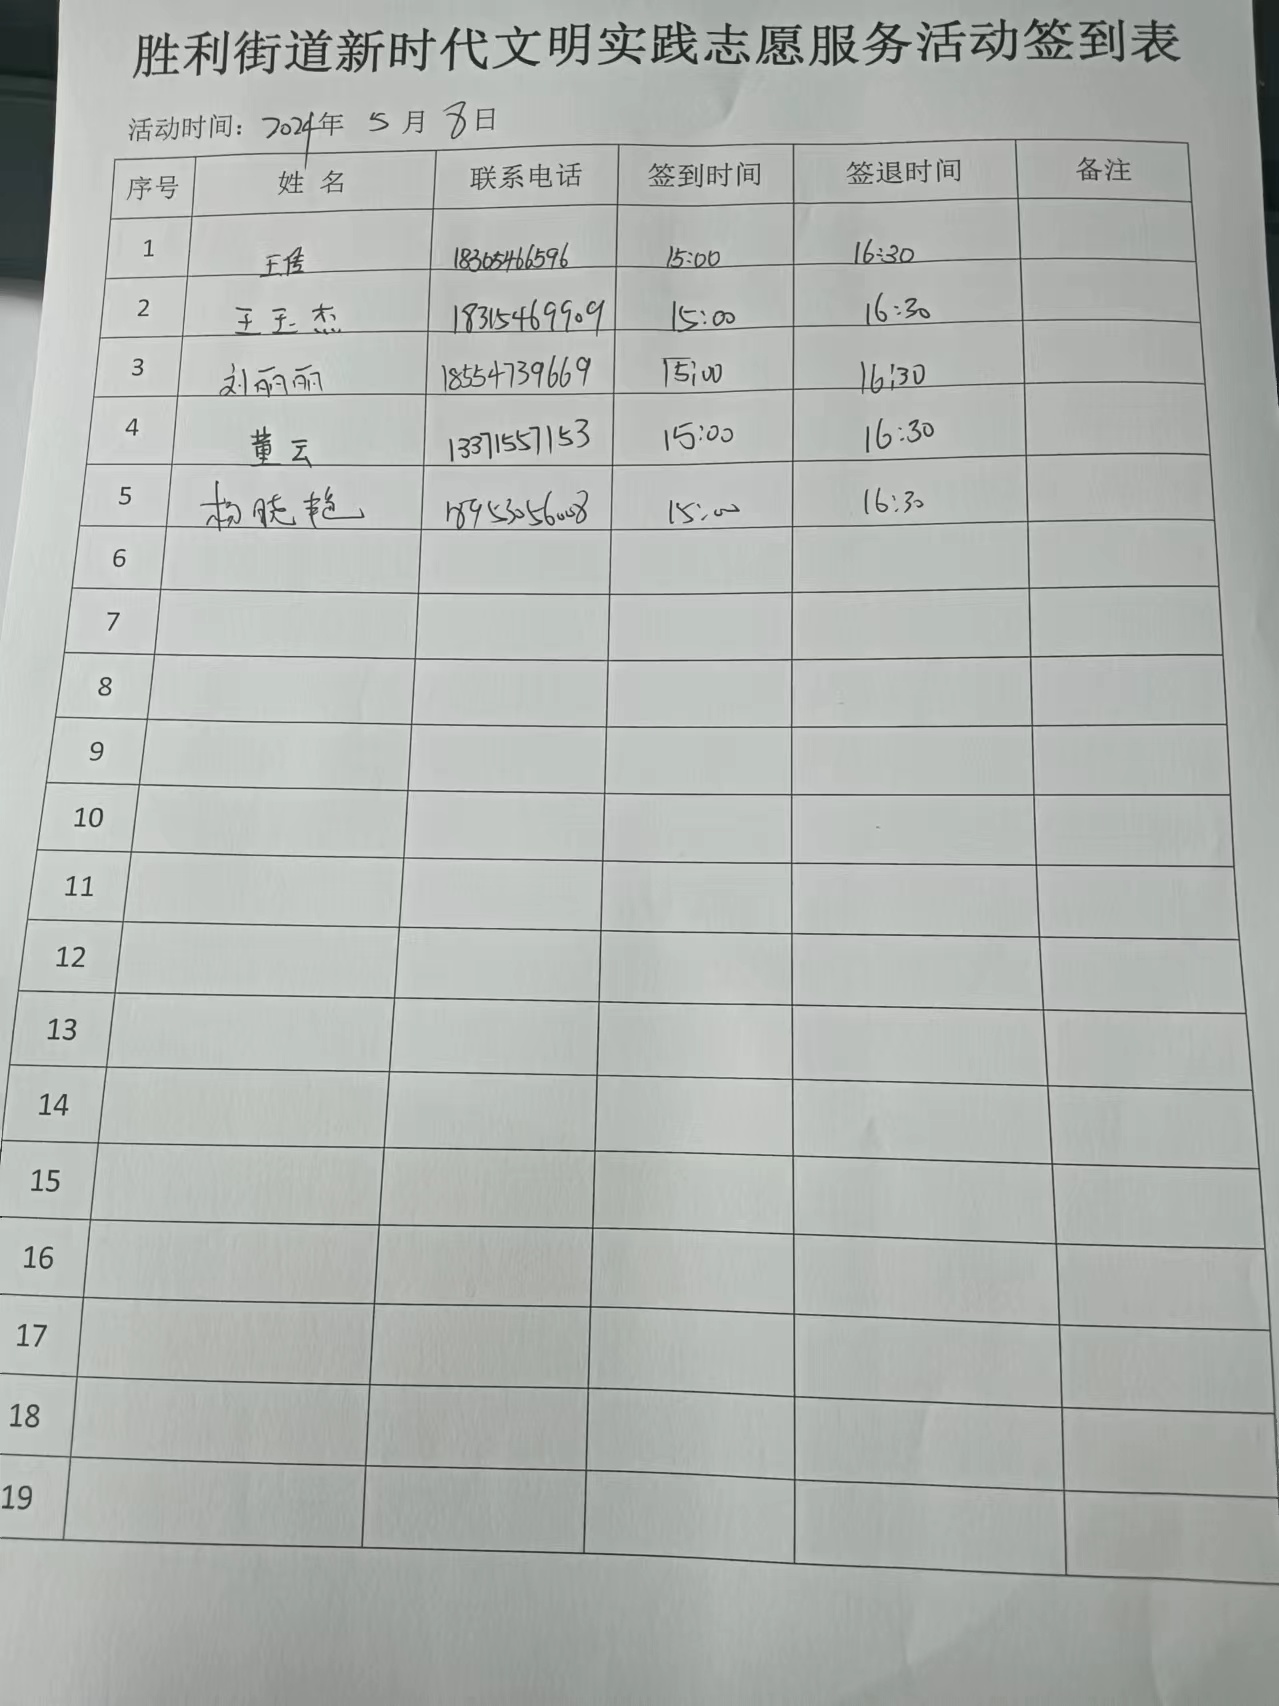 胜利街道新时代文明实践志愿服务活动签到表
活动时间：2024年 5 月 8日
序号 姓 名 联系电话 签到时间 签退时间 备注
1 王倩 18305466596 15:00 16:30
2 王玉杰 18315469909 15:00 16:30
3 刘丽丽 18554739669 15:00 16:30
4 董云 13371557153 15:00 16:30
5 杨晓艳 18953056008 15:00 16:30
6
7
8
9
10
11
12
13
14
15
16
17
18
19